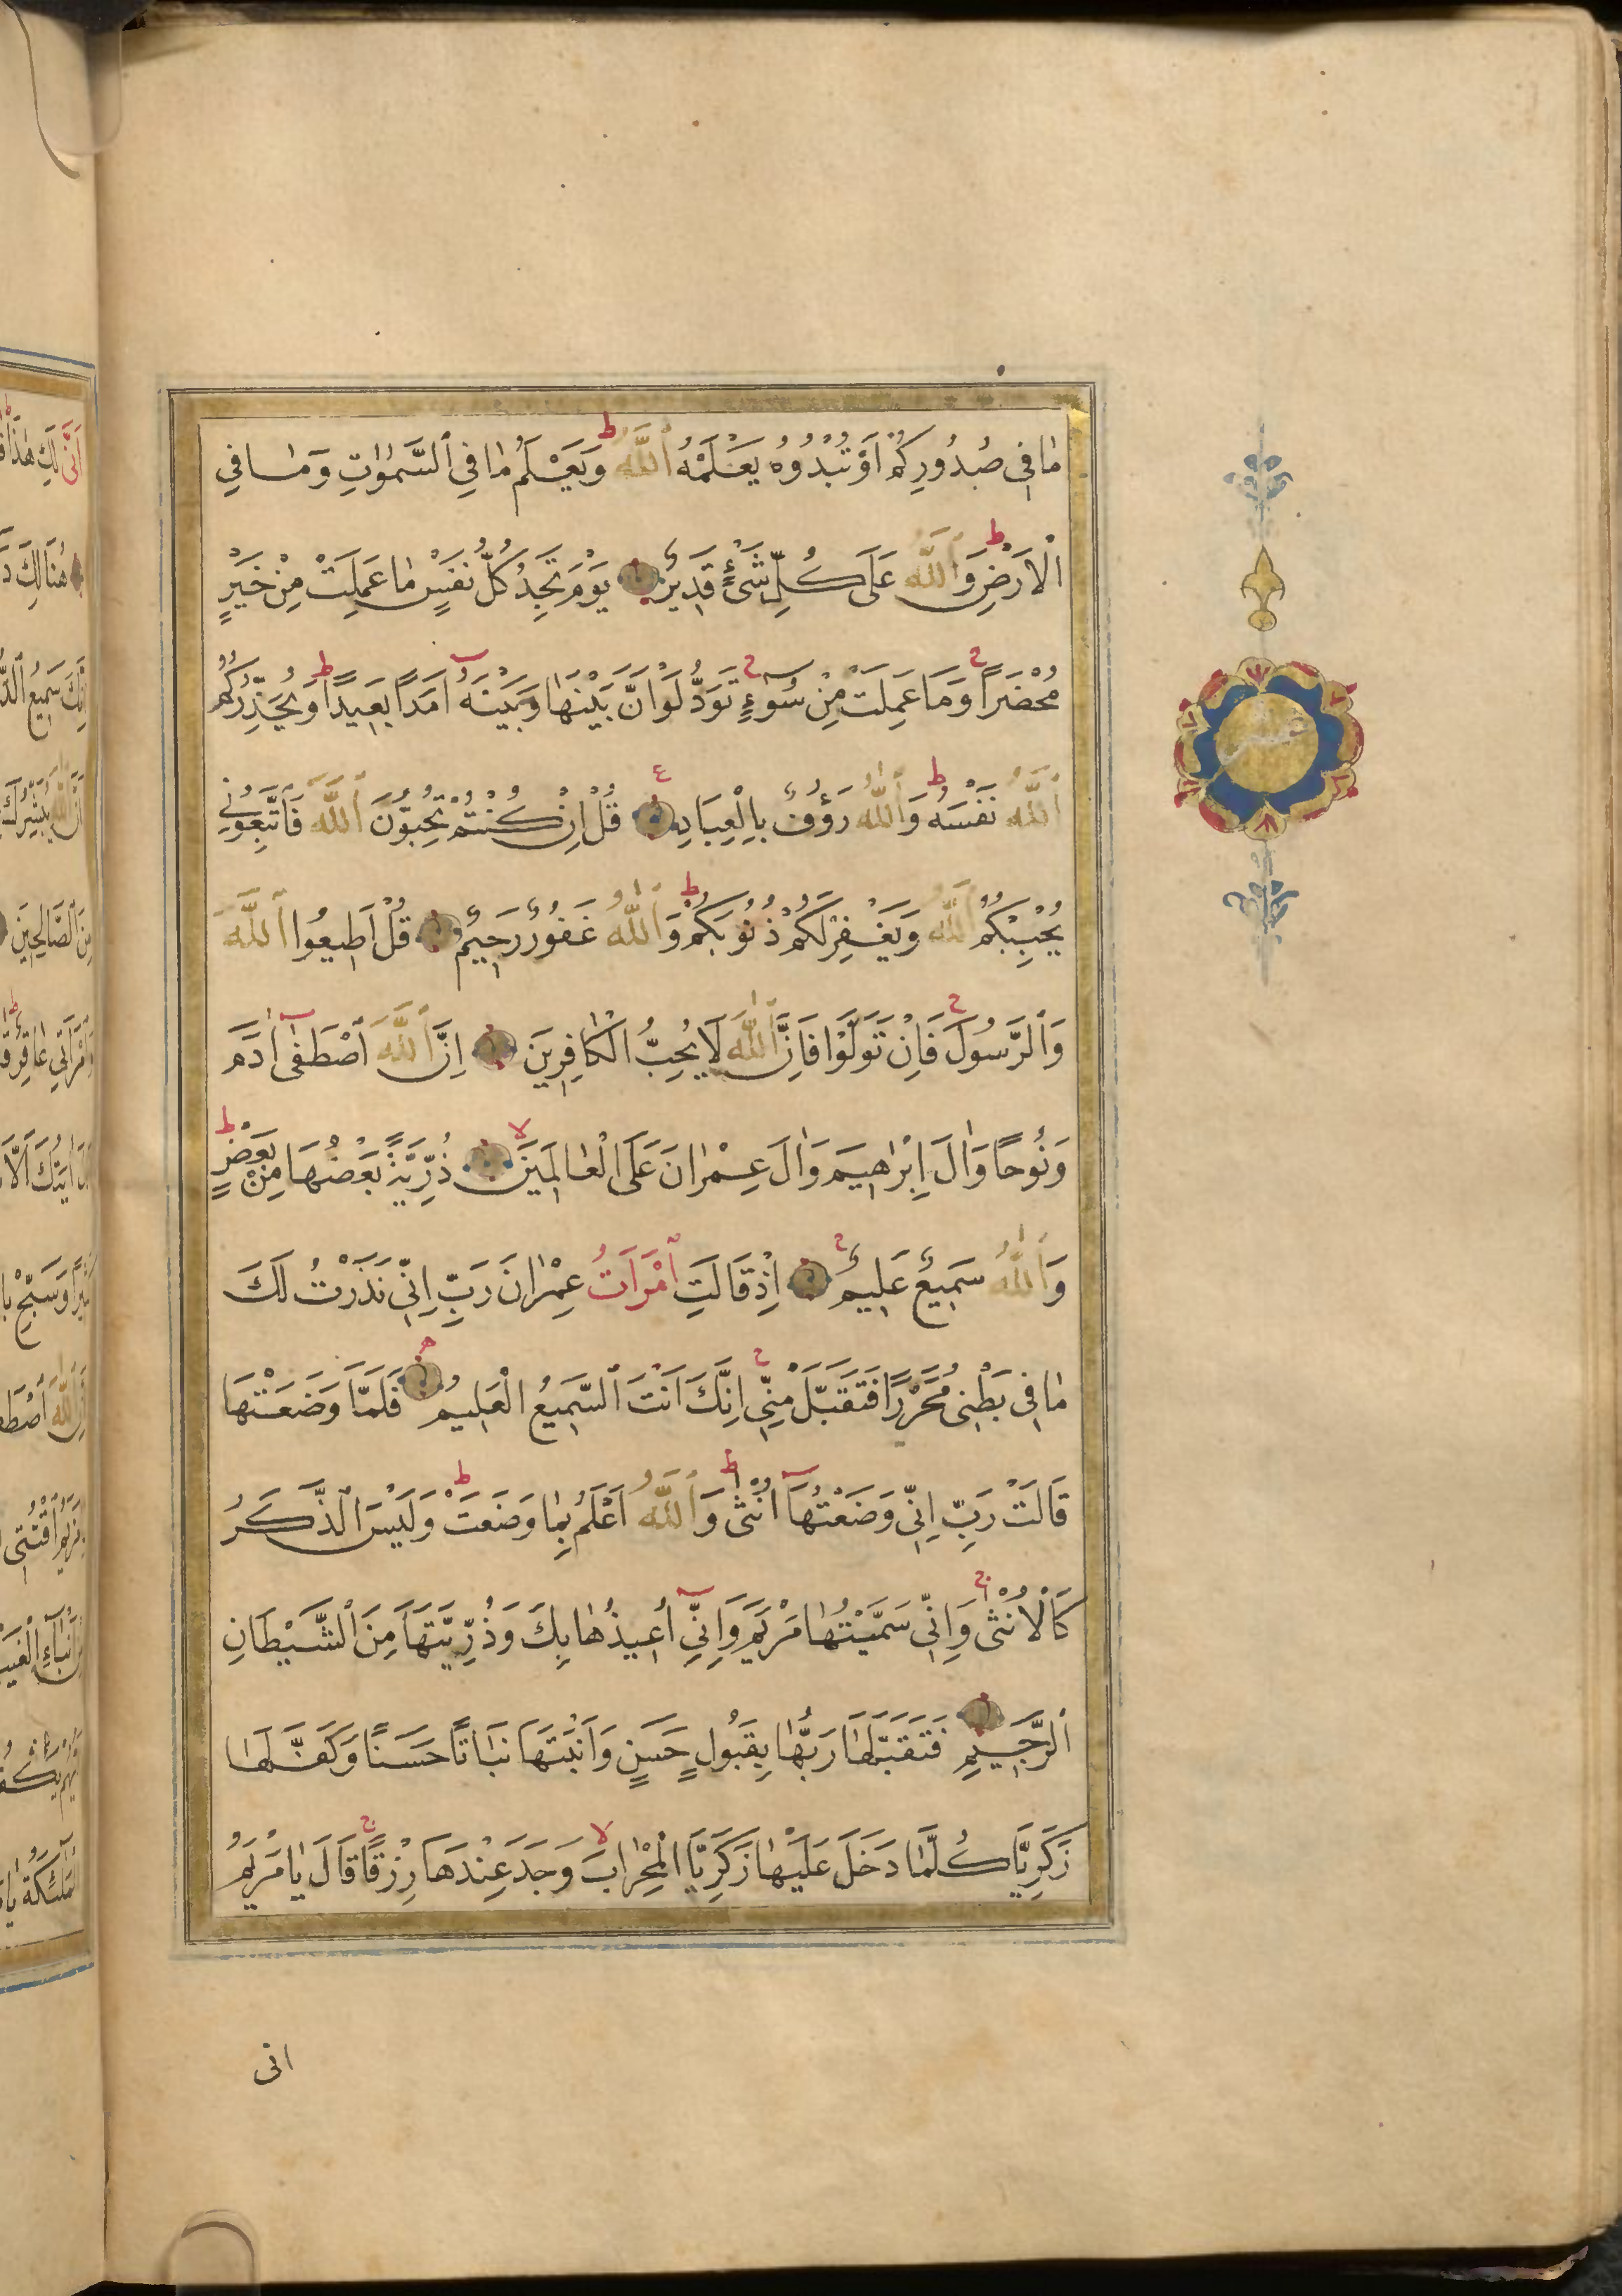 مَا فِي صُدُورِكُمْ أَوْ تُبْدُوهُ يَعْلَمْهُ ٱللَّهُ وَيَعْلَمُ مَا فِي ٱلسَّمٰوَاتِ وَمَا فِي
الْاَرْضِ وَٱللَّهُ عَلَى كُلِّ شَيْءٍ قَدِيرٌ يَوْمَ تَجِدُ كُلُّ نَفْسٍ مَا عَمِلَتْ مِنْ خَيْرٍ
مُحْضَرًا وَمَا عَمِلَتْ مِنْ سُوءٍ تَوَدُّ لَوْ اَنَّ بَيْنَهَا وَبَيْنَهُ اَمَدًا بَعِيدًا وَيُحَذِّرُكُمُ
ٱللَّهُ نَفْسَهُ وَٱللَّهُ رَؤُفٌ بِالْعِبَادِ قُلْ اِنْ كُنْتُمْ تُحِبُّونَ ٱللَّهَ فَاتَّبِعُونِي
يُحْبِبْكُمُ ٱللَّهُ وَيَغْفِرْ لَكُمْ ذُنُوبَكُمْ وَٱللَّهُ غَفُورٌ رَحِيمٌ قُلْ اَطِيعُوا ٱللَّهَ
وَٱلرَّسُولَ فَاِنْ تَوَلَّوْا فَاِنَّ ٱللَّهَ لَا يُحِبُّ الْكَافِرِينَ اِنَّ ٱللَّهَ ٱصْطَفٰى اٰدَمَ
وَنُوحًا وَاٰلَ اِبْرٰهِيمَ وَاٰلَ عِمْرٰانَ عَلَى الْعَالَمِينَ ذُرِّيَّةً بَعْضُهَا مِنْ بَعْضٍ
وَٱللَّهُ سَمِيعٌ عَلِيمٌ اِذْ قَالَتِ ٱمْرَاَتُ عِمْرٰانَ رَبِّ اِنِّي نَذَرْتُ لَكَ
مَا فِي بَطْنِي مُحَرَّرًا فَتَقَبَّلْ مِنِّي اِنَّكَ اَنْتَ ٱلسَّمِيعُ الْعَلِيمُ فَلَمَّا وَضَعَتْهَا
قَالَتْ رَبِّ اِنِّي وَضَعْتُهَا اُنْثٰى وَٱللَّهُ اَعْلَمُ بِمَا وَضَعَتْ وَلَيْسَ ٱلذَّكَرُ
كَالْاُنْثٰى وَاِنِّي سَمَّيْتُهَا مَرْيَمَ وَاِنِّي اُعِيذُهَا بِكَ وَذُرِّيَّتَهَا مِنَ ٱلشَّيْطَانِ
ٱلرَّجِيمِ فَتَقَبَّلَهَا رَبُّهَا بِقَبُولٍ حَسَنٍ وَاَنْبَتَهَا نَبَاتًا حَسَنًا وَكَفَّلَهَا
زَكَرِيَّا كُلَّمَا دَخَلَ عَلَيْهَا زَكَرِيَّا الْمِحْرَابَ وَجَدَ عِنْدَهَا رِزْقًا قَالَ يَا مَرْيَمُ
انى
اَنّٰى لَكِ هٰذَا
هُنَالِكَ
اِنَّكَ سَمِيعُ
اَنَّ ٱللَّهَ يُبَشِّرُكَ
مِنَ ٱلصَّالِحِينَ